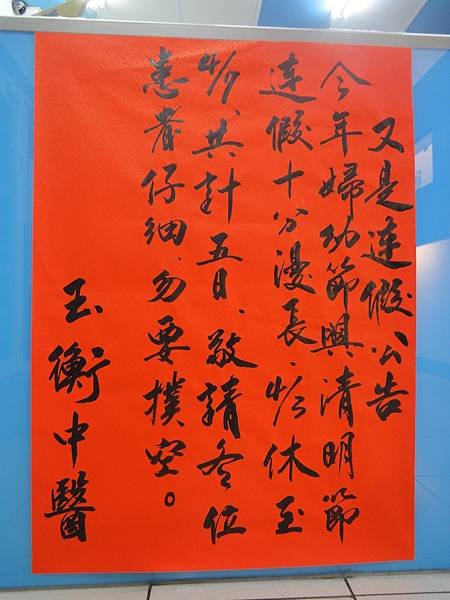 又是連假公告
今年婦幼節與清明節
連假十分漫長、休至
共計五日、敬請各位
患者仔細、勿要撲空。
玉衡中醫